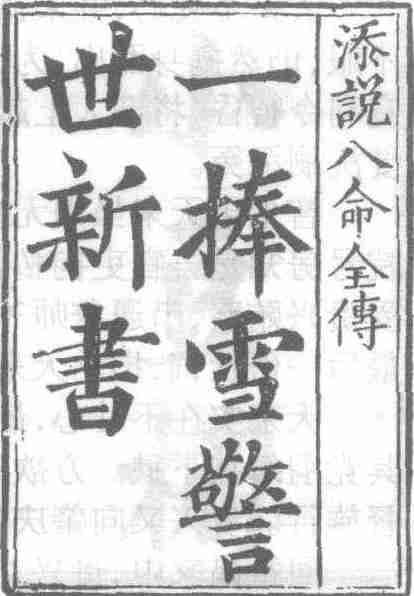 添説八命全傳
一捧雪警
世新書